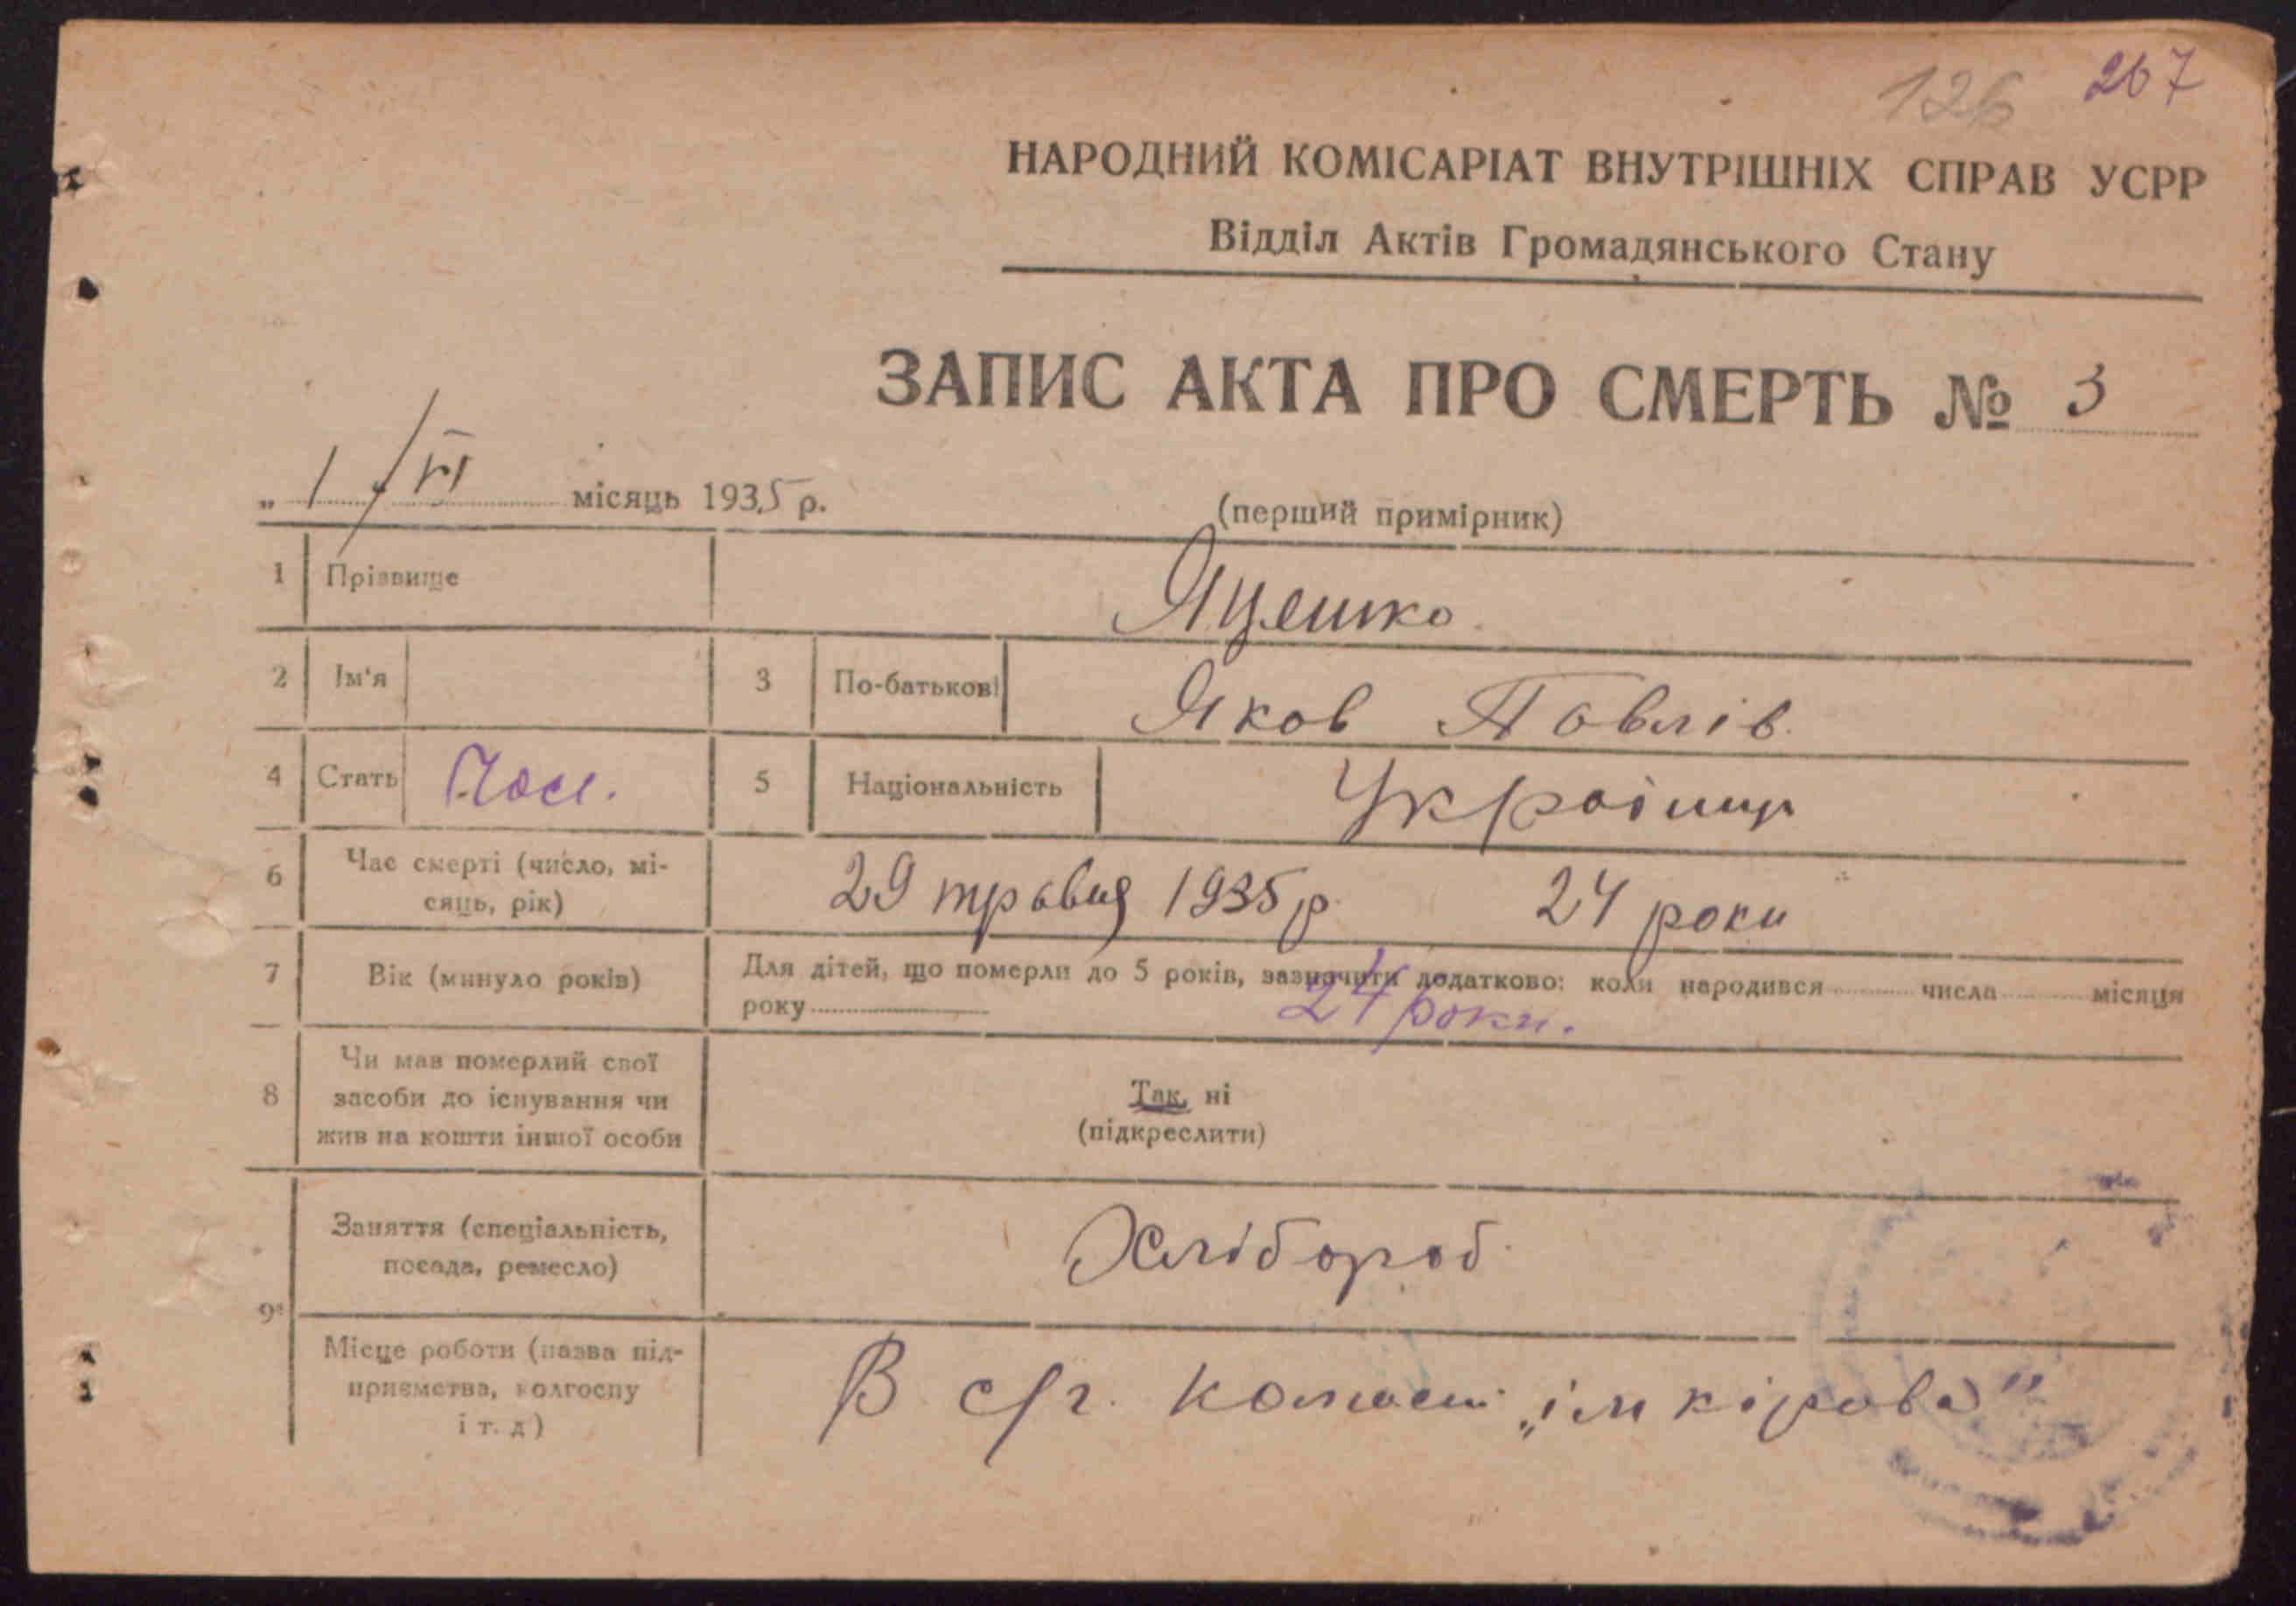 126 267
НАРОДНИЙ КОМІСАРІАТ ВНУТРІШНІХ СПРАВ УСРР
Відділ Актів Громадянського Стану
ЗАПИС АКТА ПРО СМЕРТЬ № 3
„ 1 / VI місяць 1935 р.
(перший примірник)
1 Прізвище Яцешко
2 Ім'я 3 По-батькові Яков Павлів
4 Стать Чол. 5 Національність Українц
6 Час смерті (число, мі-
сяць, рік) 29 травня 1935 р. 24 роки
7 Вік (минуло років) Для дітей, що померли до 5 років, зазначити додатково: коли народився числа місяця
року 24 роки.
8 Чи мав померлий свої
засоби до існування чи
жив на кошти іншої особи
Так, ні
(підкреслити)
9 Заняття (спеціальність,
посада, ремесло) Хлібороб
Місце роботи (назва під-
приємства, колгоспу
і т. д) В с/г. „ім кірова"